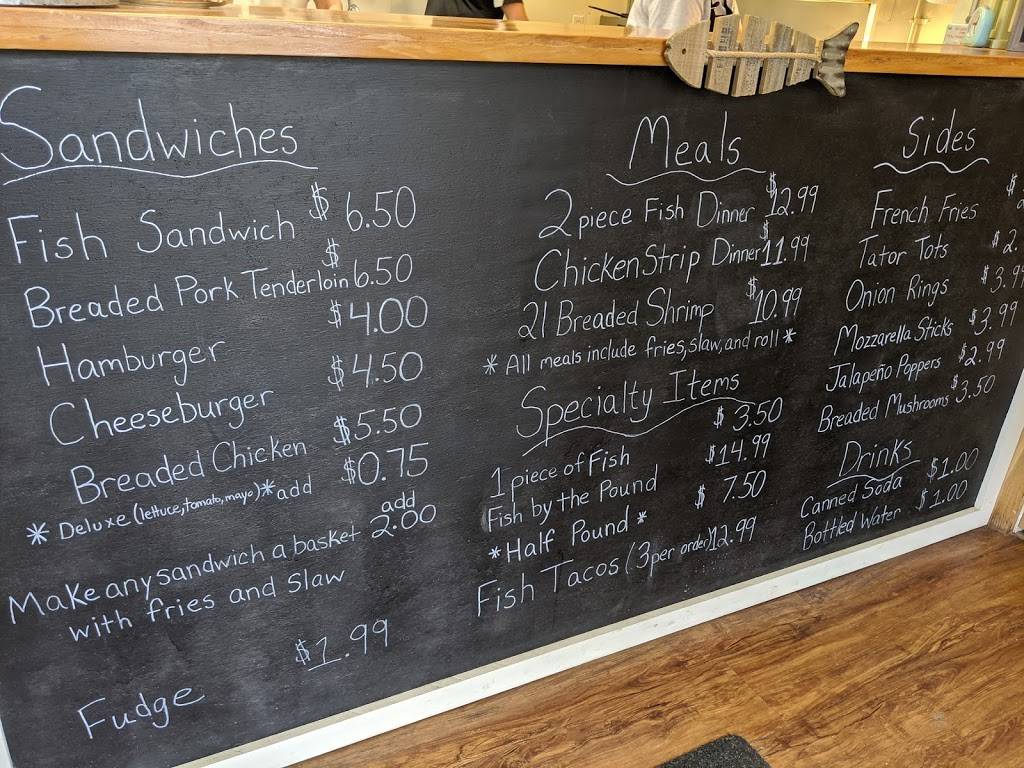 Sandwiches
Fish Sandwich $6.50
Breaded Pork Tenderloin $6.50
Hamburger $4.00
Cheeseburger $4.50
Breaded Chicken $5.50
* Deluxe (lettuce, tomato, mayo)* add $0.75
Make any sandwich a basket add 2.00
with fries and slaw
Fudge $1.99
Meals
2 piece Fish Dinner $12.99
Chicken Strip Dinner $11.99
21 Breaded Shrimp $10.99
* All meals include fries, slaw, and roll *
Specialty Items
1 piece of Fish $3.50
Fish by the Pound $14.99
* Half Pound * $7.50
Fish Tacos (3 per order) 12.99
Sides
French Fries $
Tator Tots $2.
Onion Rings $3.9
Mozzarella Sticks $3.99
Jalapeño Poppers $2.99
Breaded Mushrooms $3.50
Drinks
Canned Soda $1.00
Bottled Water $1.00